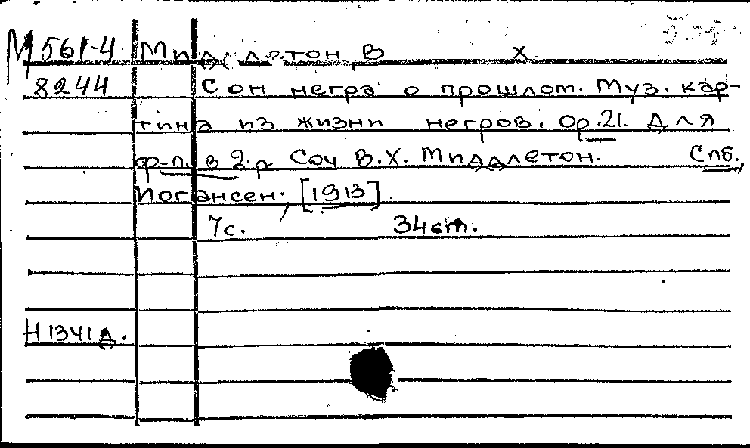 М 561-4 Миддлетон, В. Х.
8244 Сон негра о прошлом. Муз. кар-
тина из жизни негров. Ор. 21. Для
ф-п. в 2 р. Соч В.Х. Миддлетон. Спб.,
Иогансен, [1913].
7с. 34см.
Н 1341д.